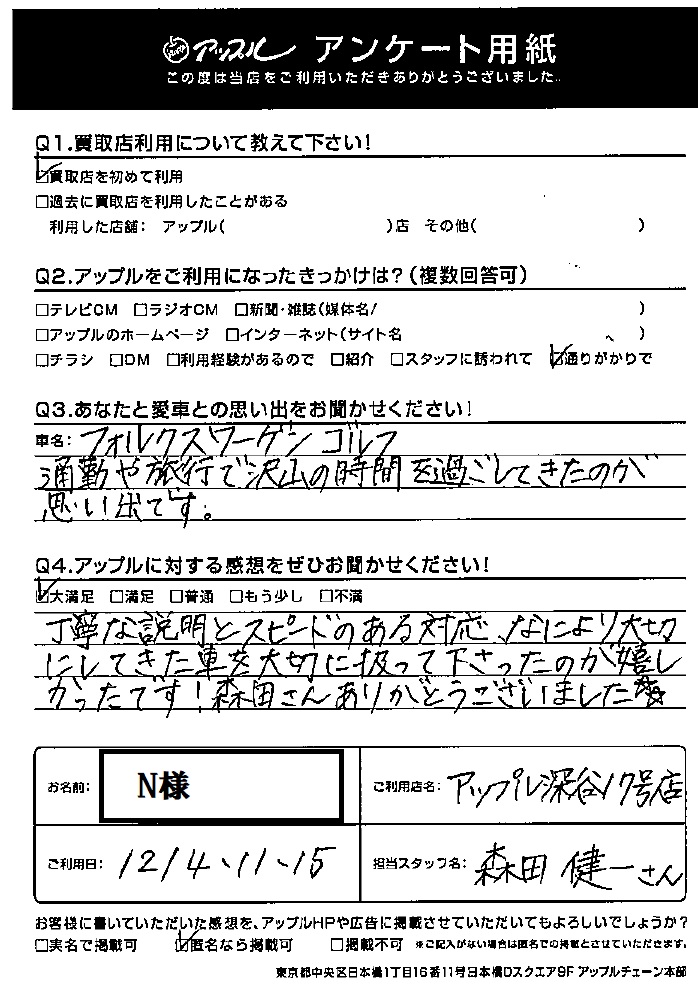 アップル アンケート用紙
この度は当店をご利用いただきありがとうございました。
Q1.買取店利用について教えて下さい!
☑買取店を初めて利用
□過去に買取店を利用したことがある
利用した店舗: アップル( )店 その他( )
Q2.アップルをご利用になったきっかけは?(複数回答可)
□テレビCM □ラジオCM □新聞・雑誌(媒体名/ )
□アップルのホームページ □インターネット(サイト名 )
□チラシ □DM □利用経験があるので □紹介 □スタッフに誘われて ☑通りがかりで
Q3.あなたと愛車との思い出をお聞かせください!
車名: フォルクスワーゲン ゴルフ
通勤や旅行で沢山の時間を過ごしてきたのが
思い出です。
Q4.アップルに対する感想をぜひお聞かせください!
☑大満足 □満足 □普通 □もう少し □不満
丁寧な説明とスピードのある対応、なにより大切
にしてきた車を大切に扱って下さったのが嬉し
かったです!森田さんありがとうございました☆
お名前: N様
ご利用店名: アップル深谷17号店
ご利用日: 12/4、11、15
担当スタッフ名: 森田 健一さん
お客様に書いていただいた感想を、アップルHPや広告に掲載させていただいてもよろしいでしょうか?
□実名で掲載可 ☑匿名なら掲載可 □掲載不可 ※ご記入がない場合は匿名での掲載とさせていただきます。
東京都中央区日本橋1丁目16番11号日本橋Dスクエア9F アップルチェーン本部